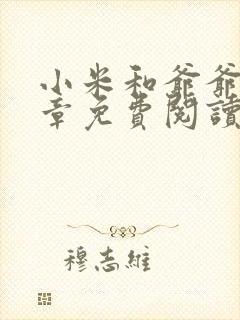 小米和爺爺
章免費閱讀
穆志維